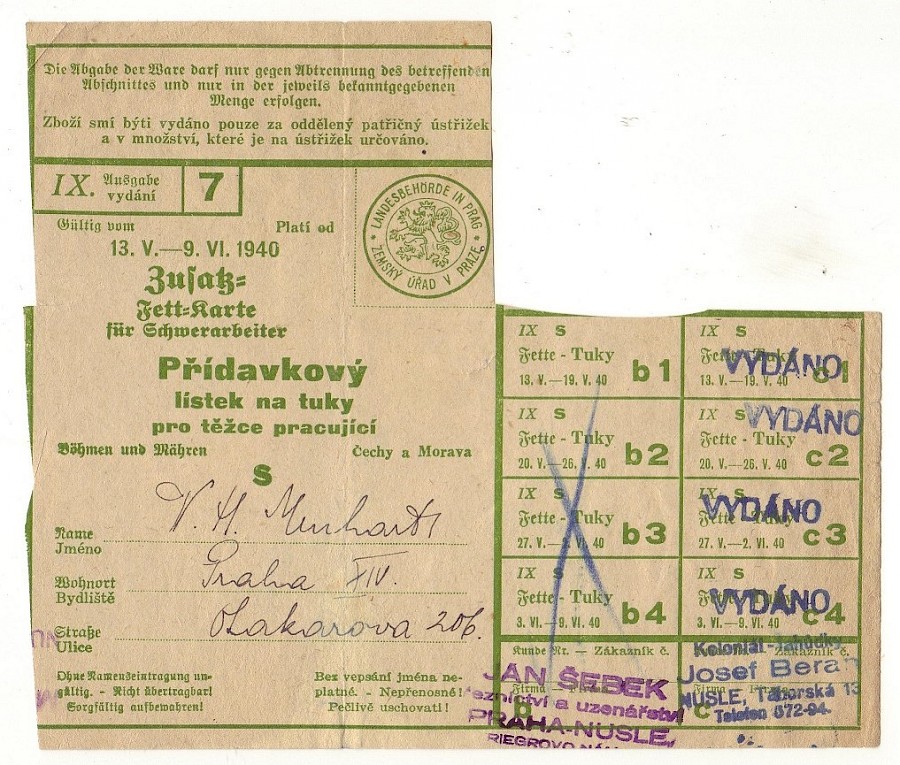 Die Abgabe der Ware darf nur gegen Abtrennung des betreffenden
Abschnittes und nur in der jeweils bekanntgegebenen
Menge erfolgen.
Zboží smí býti vydáno pouze za oddělený patřičný ústřižek
a v množství, které je na ústřižek určováno.
IX. Ausgabe
vydání
7
LANDESBEHÖRDE IN PRAG
ZEMSKÝ ÚŘAD V PRAZE
Gültig vom Platí od
13. V.—9. VI. 1940
Zusatz=
Fett=Karte
für Schwerarbeiter
Přídavkový
lístek na tuky
pro těžce pracující
Böhmen und Mähren Čechy a Morava
S
Name
Jméno
V. H.
Wohnort
Bydliště
Praha XIV.
Straße
Ulice
Otakarova 206.
Ohne Namenseintragung un-
gültig. - Nicht übertragbar!
Sorgfältig aufbewahren!
Bez vepsání jména ne-
platné. - Nepřenosné!
Pečlivě uschovati!
IX S
Fette - Tuky
13. V.—19. V. 40
b1
IX S
Fette - Tuky
13. V.—19. V. 40
c1
VYDÁNO
IX S
Fette - Tuky
20. V.—26. V. 40
b2
IX S
Fette - Tuky
20. V.—26. V. 40
c2
VYDÁNO
IX S
Fette - Tuky
27. V.—2. VI. 40
b3
IX S
Fette - Tuky
27. V.—2. VI. 40
c3
VYDÁNO
IX S
Fette - Tuky
3. VI.—9. VI. 40
b4
IX S
Fette - Tuky
3. VI.—9. VI. 40
c4
VYDÁNO
Kunde Nr. — Zákazník č.
Firma
b
JAN ŠEBEK
řeznictví a uzenářství
PRAHA-NUSLE,
RIEGROVO NÁM
Zákazník č.
Firma
c
Koloniál - lahůdky
Josef Beran
NUSLE, Táborská 13
Telefon 572-94.